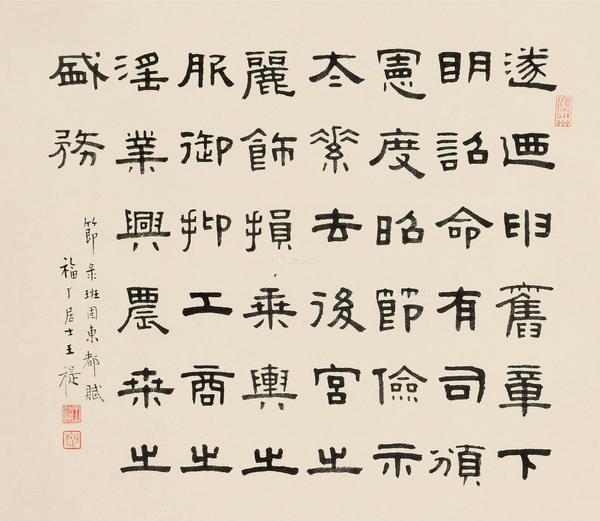 遂迺申舊章下
明詔命有司頒
憲度昭節儉示
太素去後宮之
麗飾損乘輿之
服御抑工商之
淫業興農桑之
盛務
節彔班固東都賦
福丁居士王禔